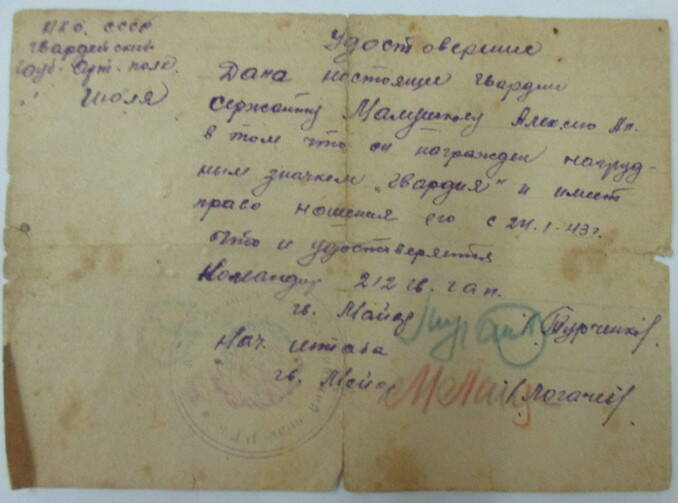 НКО. СССР
Гвардейский
Гауб. Арт. полк.
Июля
Удостоверение
Дана настоящее гвардии
сержанту Алексею
в том что он награжден нагруд-
ным значком „Гвардия" и имеет
право ношения его с 24.1.43 г.
Что и удостоверяется
Командир 212 гв. гап.
гв. Майор /Турченков/
Нач. штаба
гв. Майор /Логачев/